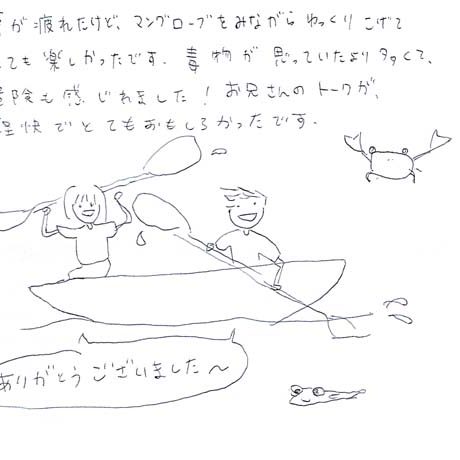 が疲れたけど、マングローブをみながらゆっくりこげて
ても楽しかったです。毒物が思っていたより多くて、
険も感じれました！お兄さんのトークが、
快でとてもおもしろかったです。
ありがとうございました〜